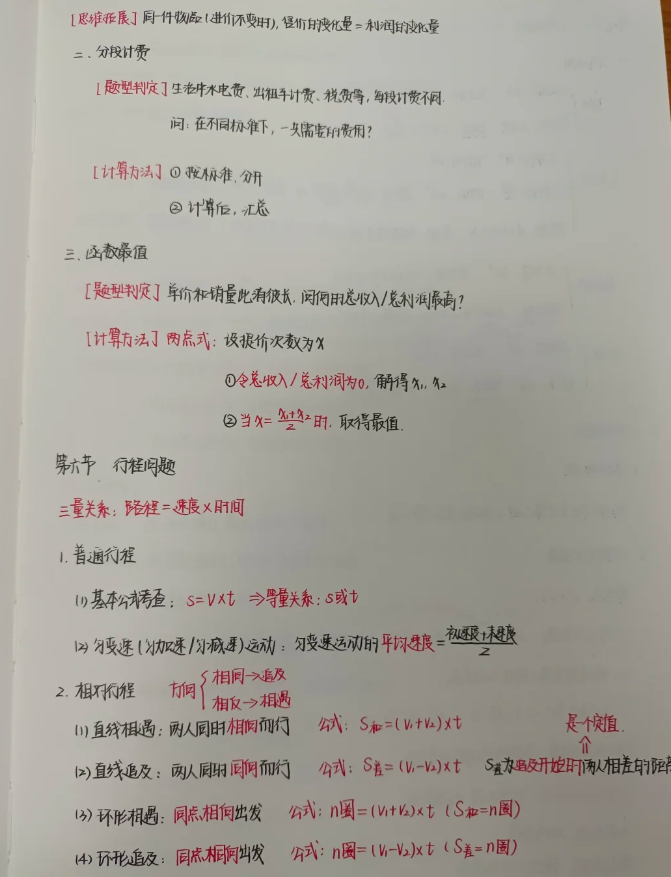 [思维拓展] 同一件物品(进价不变时), 售价的变化量=利润的变化量
二、分段计费
[题型判定] 生活中水电费、出租车计费、税费等, 每段计费不同.
问: 在不同标准下, 一共需要的费用?
[计算方法] ① 按标准, 分开
② 计算后, 汇总
三、函数最值
[题型判定] 单价和销量此消彼长, 问何时总收入/总利润最高?
[计算方法] 两点式: 设提价次数为x
①令总收入/总利润为0, 解得x₁, x₂
②当x=(x₁+x₂)/2时, 取得最值.
第六节 行程问题
三量关系: 路程=速度×时间
1. 普通行程
(1) 基本公式考查: S=V×t ⇒等量关系: S或t
(2) 匀变速(匀加速/匀减速)运动: 匀变速运动的平均速度=(初速度+末速度)/2
2. 相对行程 方向{相同→追及
相反→相遇
(1) 直线相遇: 两人同时相向而行 公式: S和=(V₁+V₂)×t 是一个定值.
(2) 直线追及: 两人同时同向而行 公式: S差=(V₁-V₂)×t S差为追及开始时两人相差的距离
(3) 环形相遇: 同点相向出发 公式: n圈=(V₁+V₂)×t (S和=n圈)
(4) 环形追及: 同点同向出发 公式: n圈=(V₁-V₂)×t (S差=n圈)